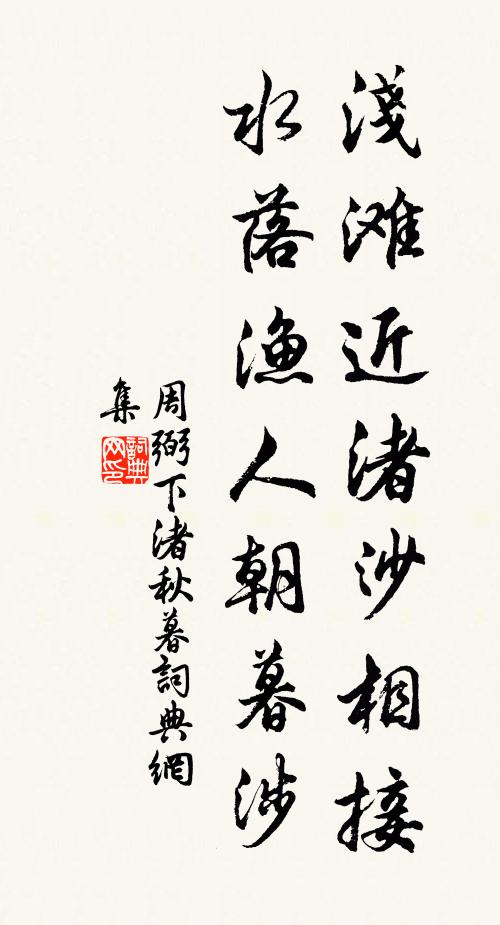 淺滩近渚沙相接
水落漁人朝暮涉
周弼下渚秋暮詞典網
集
詞典网印